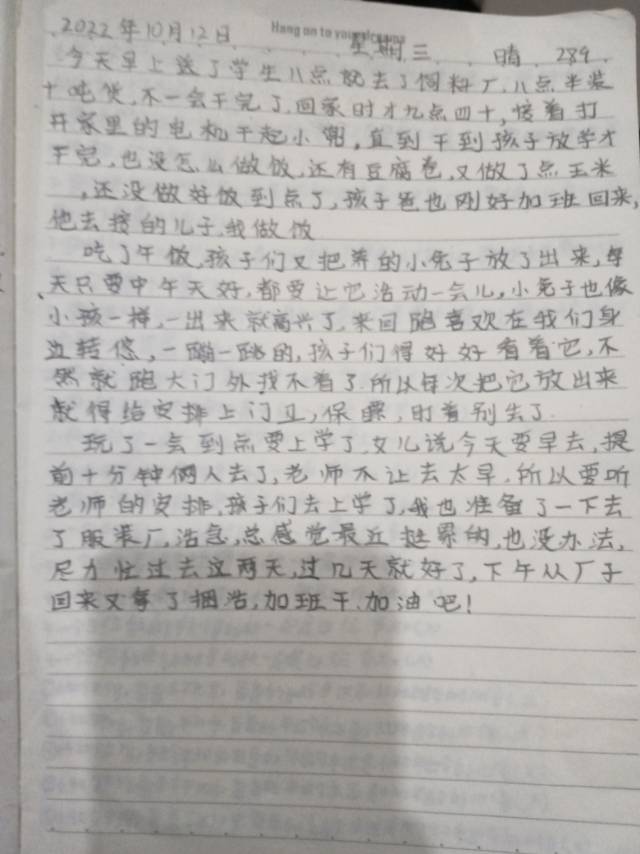 Hang on to your dreams
2022年10月12日 星期三 晴 289.
今天早上送了学生八点就去了饲料厂,八点半装
十吨货,不一会干完了,回家时才九点四十,接着打
开家里的电机干起小 ,直到干到孩子放学才
干完,也没怎么做饭,还有豆腐卷,又做了点玉米
,还没做好饭到点了,孩子爸也刚好加班回来,
他去接的儿子,我做饭
吃了午饭,孩子们又把养的小兔子放了出来,每
天只要中午天好,都要让它活动一会儿,小兔子也像
小孩一样,一出来就高兴了,来回跑喜欢在我们身
边转悠,一蹦一跳的,孩子们得好好看着它,不
然就跑大门外找不着了.所以每次把它放出来
就得给安排上门卫,保镖,盯着别丢了.
玩了一会到点要上学了,女儿说今天要早去,提
前十分钟俩人去了,老师不让去太早,所以要听
老师的安排,孩子们去上学了,我也准备了一下去
了服装厂,活急,总感觉最近挺累的,也没办法,
尽力忙过去这两天,过几天就好了,下午从厂子
回来又拿了捆活,加班干,加油吧!